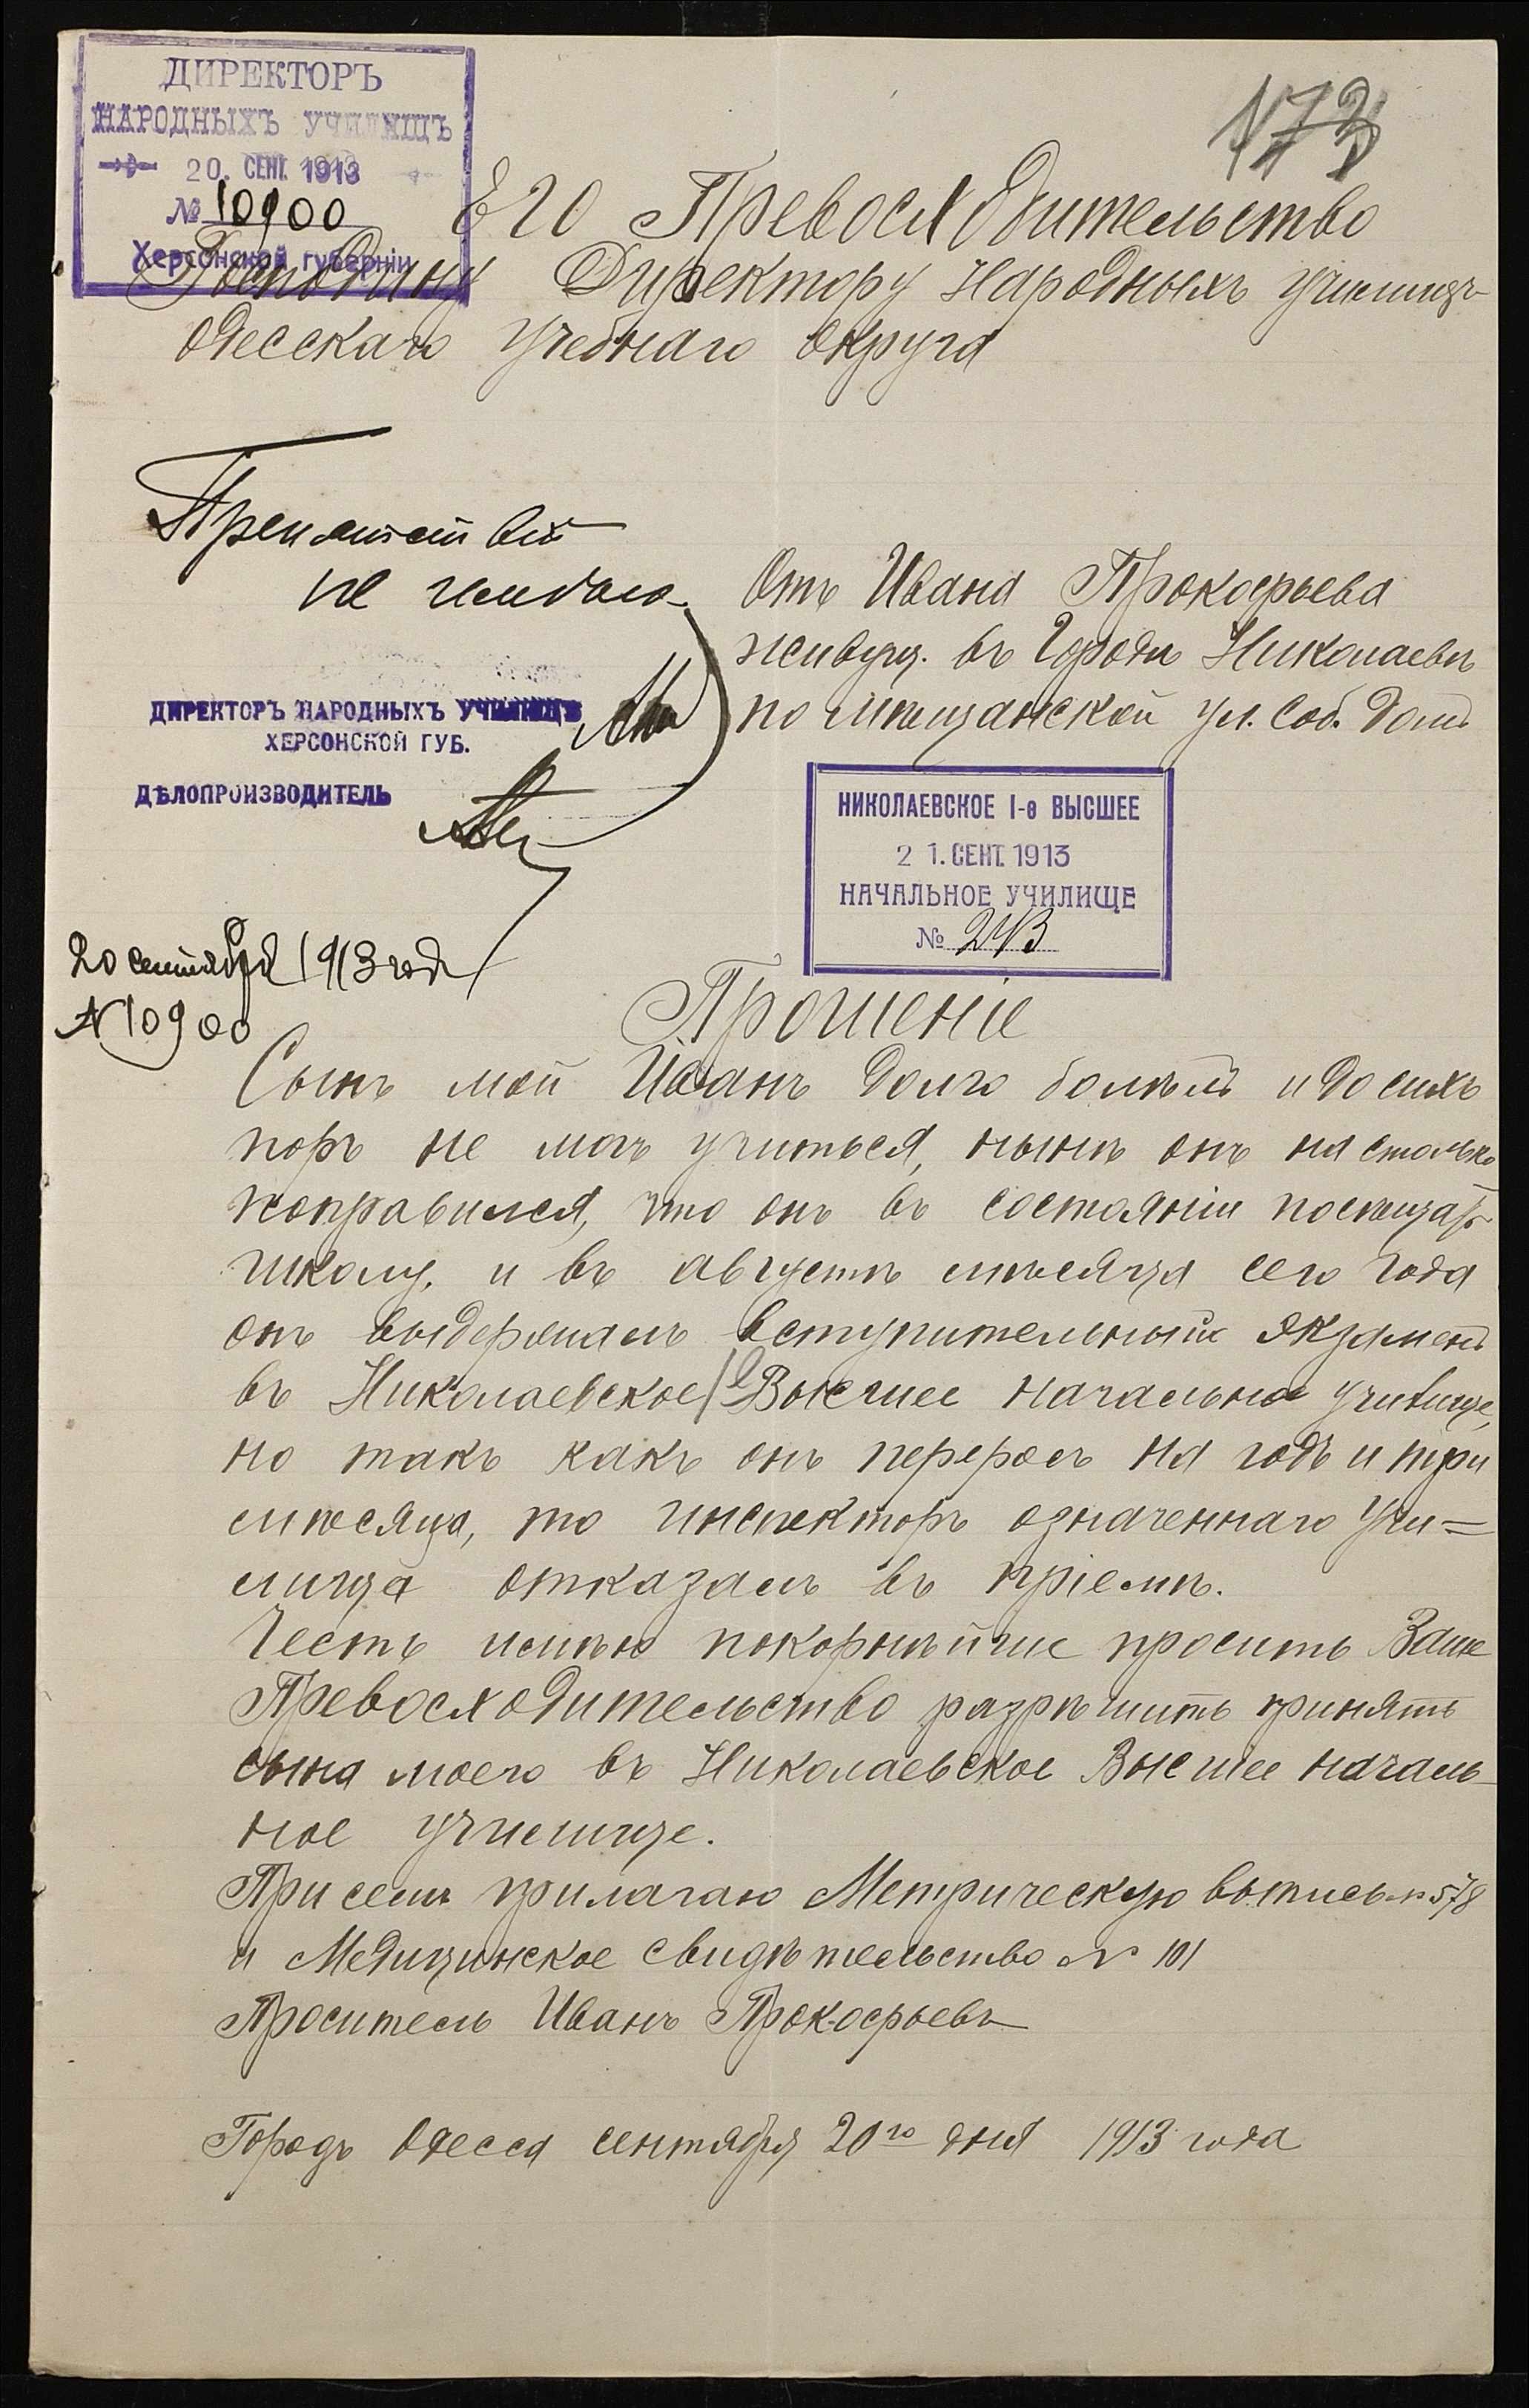 ДИРЕКТОРЪ
НАРОДНЫХЪ УЧИЛИЩЪ
20. СЕНТ. 1913
№ 10900
Херсонской губерніи
173
Его Превосходительство
Господину Директору Народныхъ училищъ
Одесскаго Учебнаго Округа
Препятствій
не имѣю.
ДИРЕКТОРЪ НАРОДНЫХЪ УЧИЛИЩЪ
ХЕРСОНСКОЙ ГУБ.
ДѢЛОПРОИЗВОДИТЕЛЬ
20 сентября 1913 года
№ 10900
Отъ Ивана Прокофьева
живущ. въ Городѣ Николаевѣ
по мѣщанской ул. соб. домъ
НИКОЛАЕВСКОЕ I-е ВЫСШЕЕ
21. СЕНТ. 1913
НАЧАЛЬНОЕ УЧИЛИЩЕ
№ 243
Прошеніе
Сынъ мой Иванъ долго болѣлъ и до сихъ
поръ не могъ учиться, нынѣ онъ на столько
поправился, что онъ въ состояніи посѣщать
школу, и въ августѣ мѣсяца сего года
онъ выдержалъ вступительный экзаменъ
въ Николаевское 1е Высшее Начальное училище,
но такъ какъ онъ переросъ на годъ и три
мѣсяца, то инспекторъ означеннаго Учи=
лища отказалъ въ пріемѣ.
Честь имѣю покорнѣйше просить Ваше
Превосходительство разрѣшить принять
сына моего въ Николаевское Высшее началь-
ное училище.
При семъ прилагаю Метрическую выпись № 578
и Медицинское свидѣтельство № 101
Проситель Иванъ Прокофьевъ
Городъ Одесса сентября 20го дня 1913 года